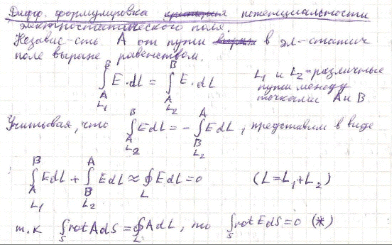 Дифф. формулировка потенциальности
электростатического поля.
Независ-сть A от пути в эл-статич
поле выражe равенством.
∫_A^B E·dL = ∫_A^B E·dL
L₁ L₂
L₁ и L₂ - различные
пути между
точками A и B.
Учитывая, что ∫_A^B Edl = -∫_B^A Edl, представим в виде
L₂ L₂
∫_A^B Edl + ∫_B^A Edl ≈ ∮_L Edl = 0 (L = L₁ + L₂)
L₁ L₂
т.к ∫_S rot A dS = ∮_L A dL, то ∫_S rot E dS = 0 (*)